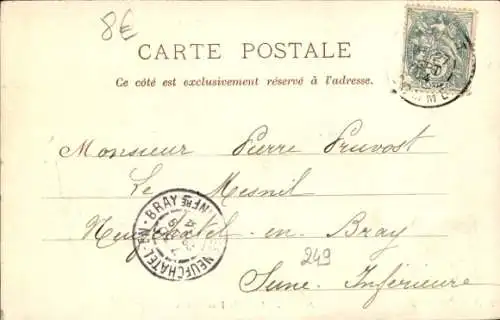 8€
CARTE POSTALE
Ce côté est exclusivement réservé à l'adresse.
Monsieur Pierre Pruvost
Le Mesnil
Neufchatel-en-Bray
249
Seine Inférieure
NEUFCHATEL-EN-BRAY